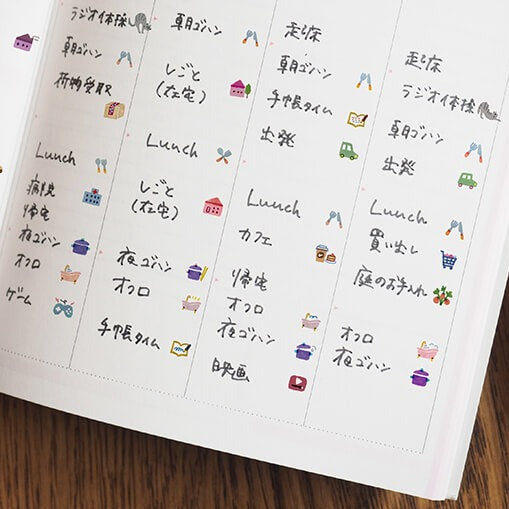 ラジオ体操
朝ゴハン
荷物受取
Lunch
病院
帰宅
夜ゴハン
オフロ
ゲーム
朝ゴハン
しごと
(在宅)
Lunch
しごと
(在宅)
夜ゴハン
オフロ
手帳タイム
起床
朝ゴハン
手帳タイム
出発
Lunch
カフェ
帰宅
オフロ
夜ゴハン
映画
起床
ラジオ体操
朝ゴハン
出発
Lunch
買い出し
庭のお手入れ
オフロ
夜ゴハン